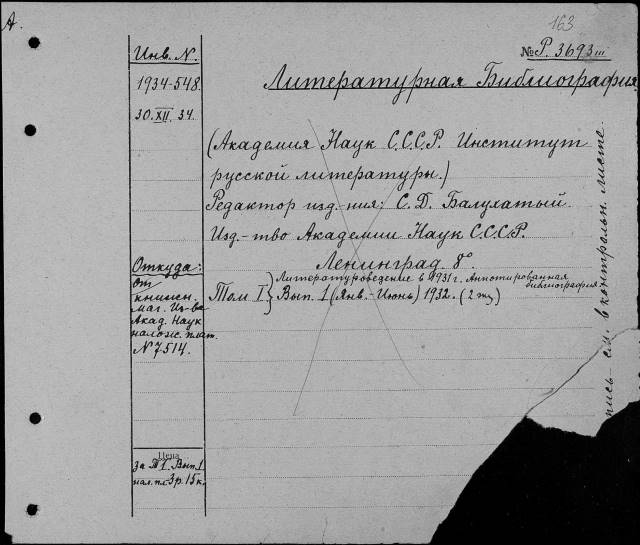 А.
163
№ Р. 3693 III
Инв. N.
1934-548.
30. XII. 34.
Литературная Библиография
(Академия Наук С.С.С.Р. Институт
русской литературы.)
Редактор изд-ния: С. Д. Балухатый.
Изд-тво Академии Наук С.С.С.Р.
Ленинград. 8°
Откуда:
от
книжн.
маг. Из-ва
Акад. Наук
налож. плат.
N 7514.
Том I } Литературоведение в 1931 г. Аннотированная библиография
Вып. 1 (Янв.-Июнь) 1932. (2 )
Цена
за Т I. Вып. 1
нал. пл. 3 р. 15 к.
см. в контрольн. листе.